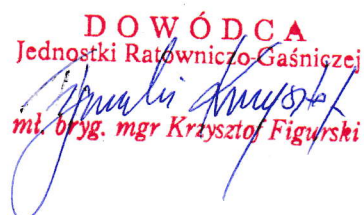 DOWÓDCA
Jednostki Ratowniczo-Gaśniczej
mł. bryg. mgr Krzysztof Figurski